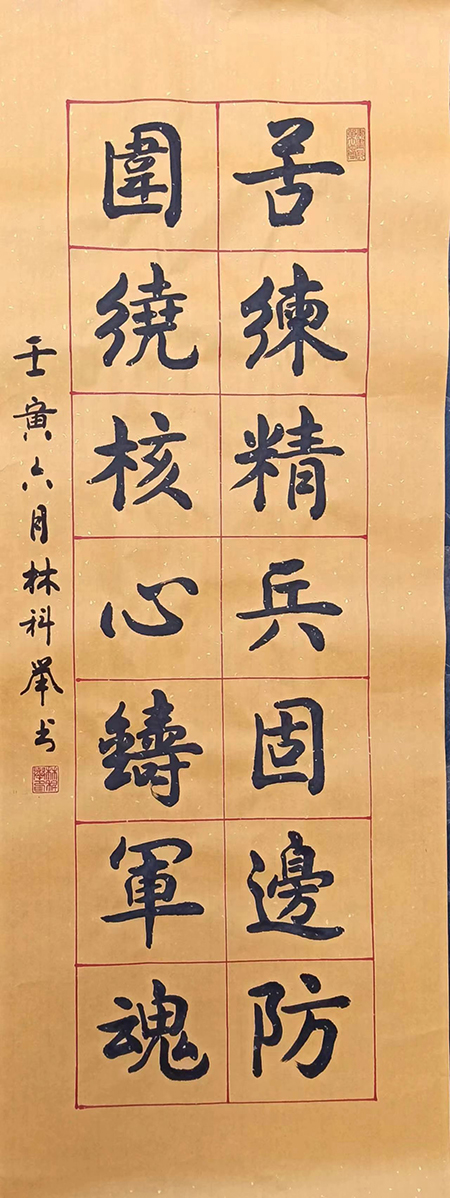 苦練精兵固邊防
圍繞核心鑄軍魂
壬寅六月林科举书